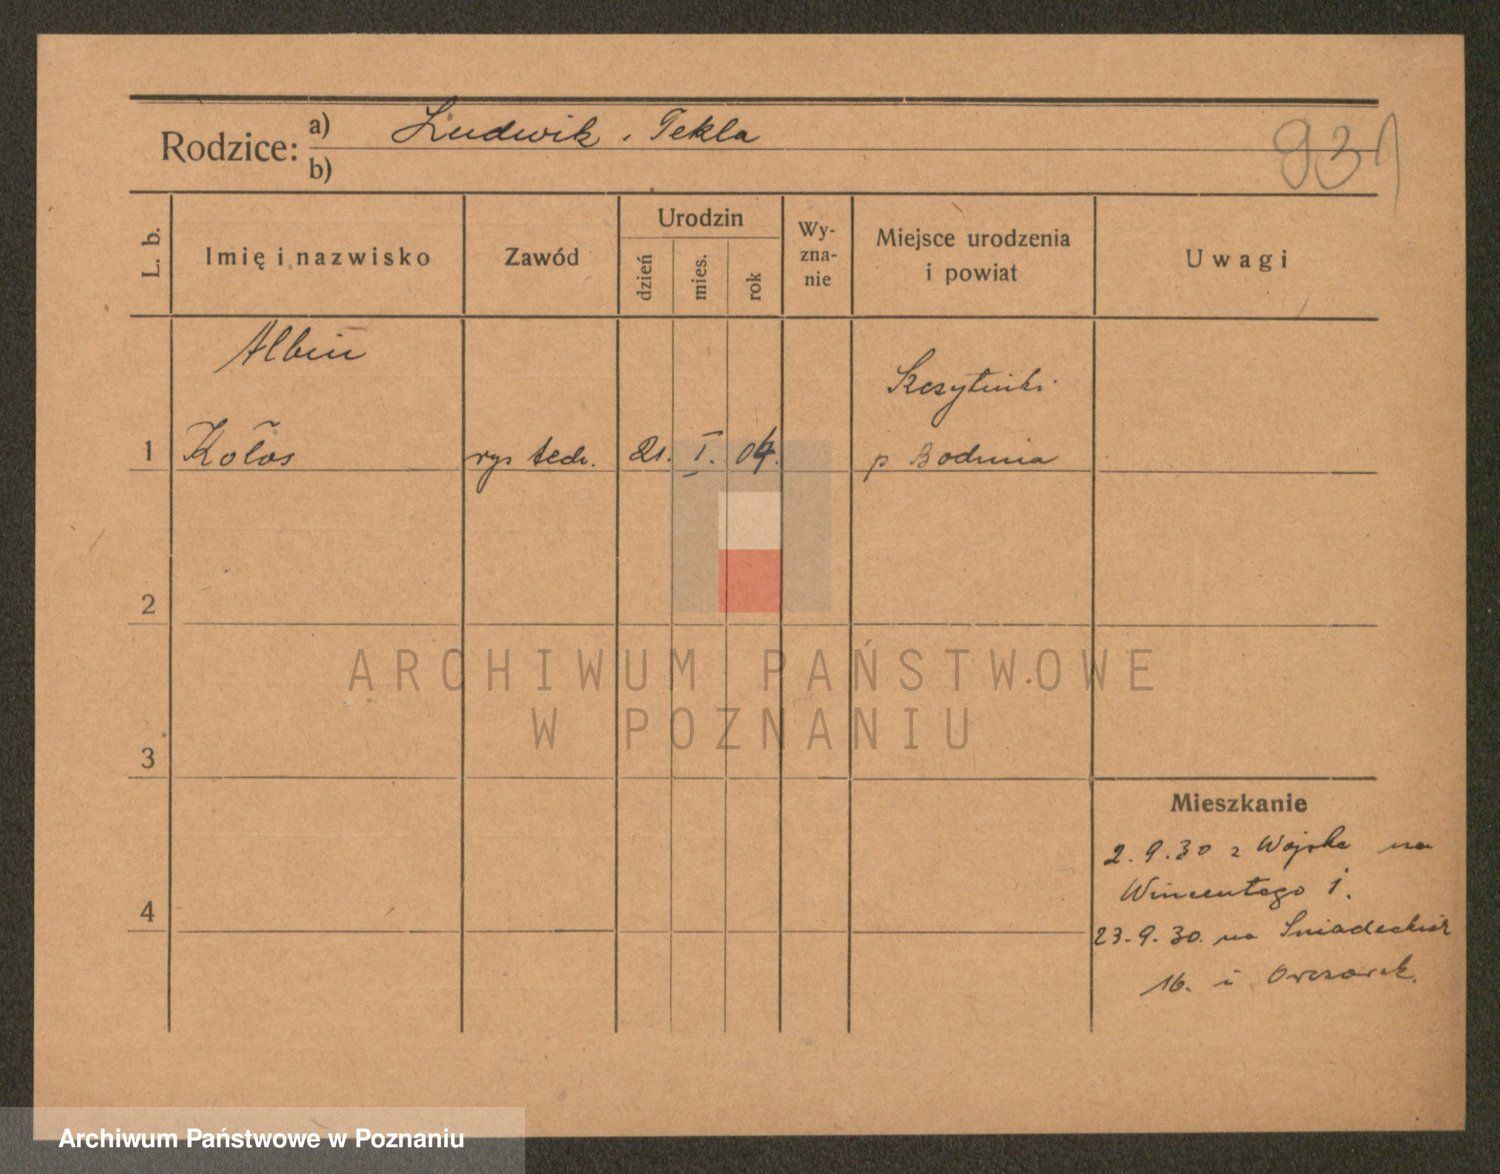 Rodzice:
a) Ludwik i Tekla
b)
931
L. b.
Imię i nazwisko
Zawód
Urodzin
dzień
mies.
rok
Wy-
zna-
nie
Miejsce urodzenia
i powiat
Uwagi
Albin
1 Kołos
rys tech.
21. I. 04.
p Bochnia
2
3
4
Mieszkanie
2.9.30 z Wojska na
Wincentego 1.
23.9.30. na Śniadeckich
16. u Owczarek.
ARCHIWUM PAŃSTWOWE
W POZNANIU
Archiwum Państwowe w Poznaniu